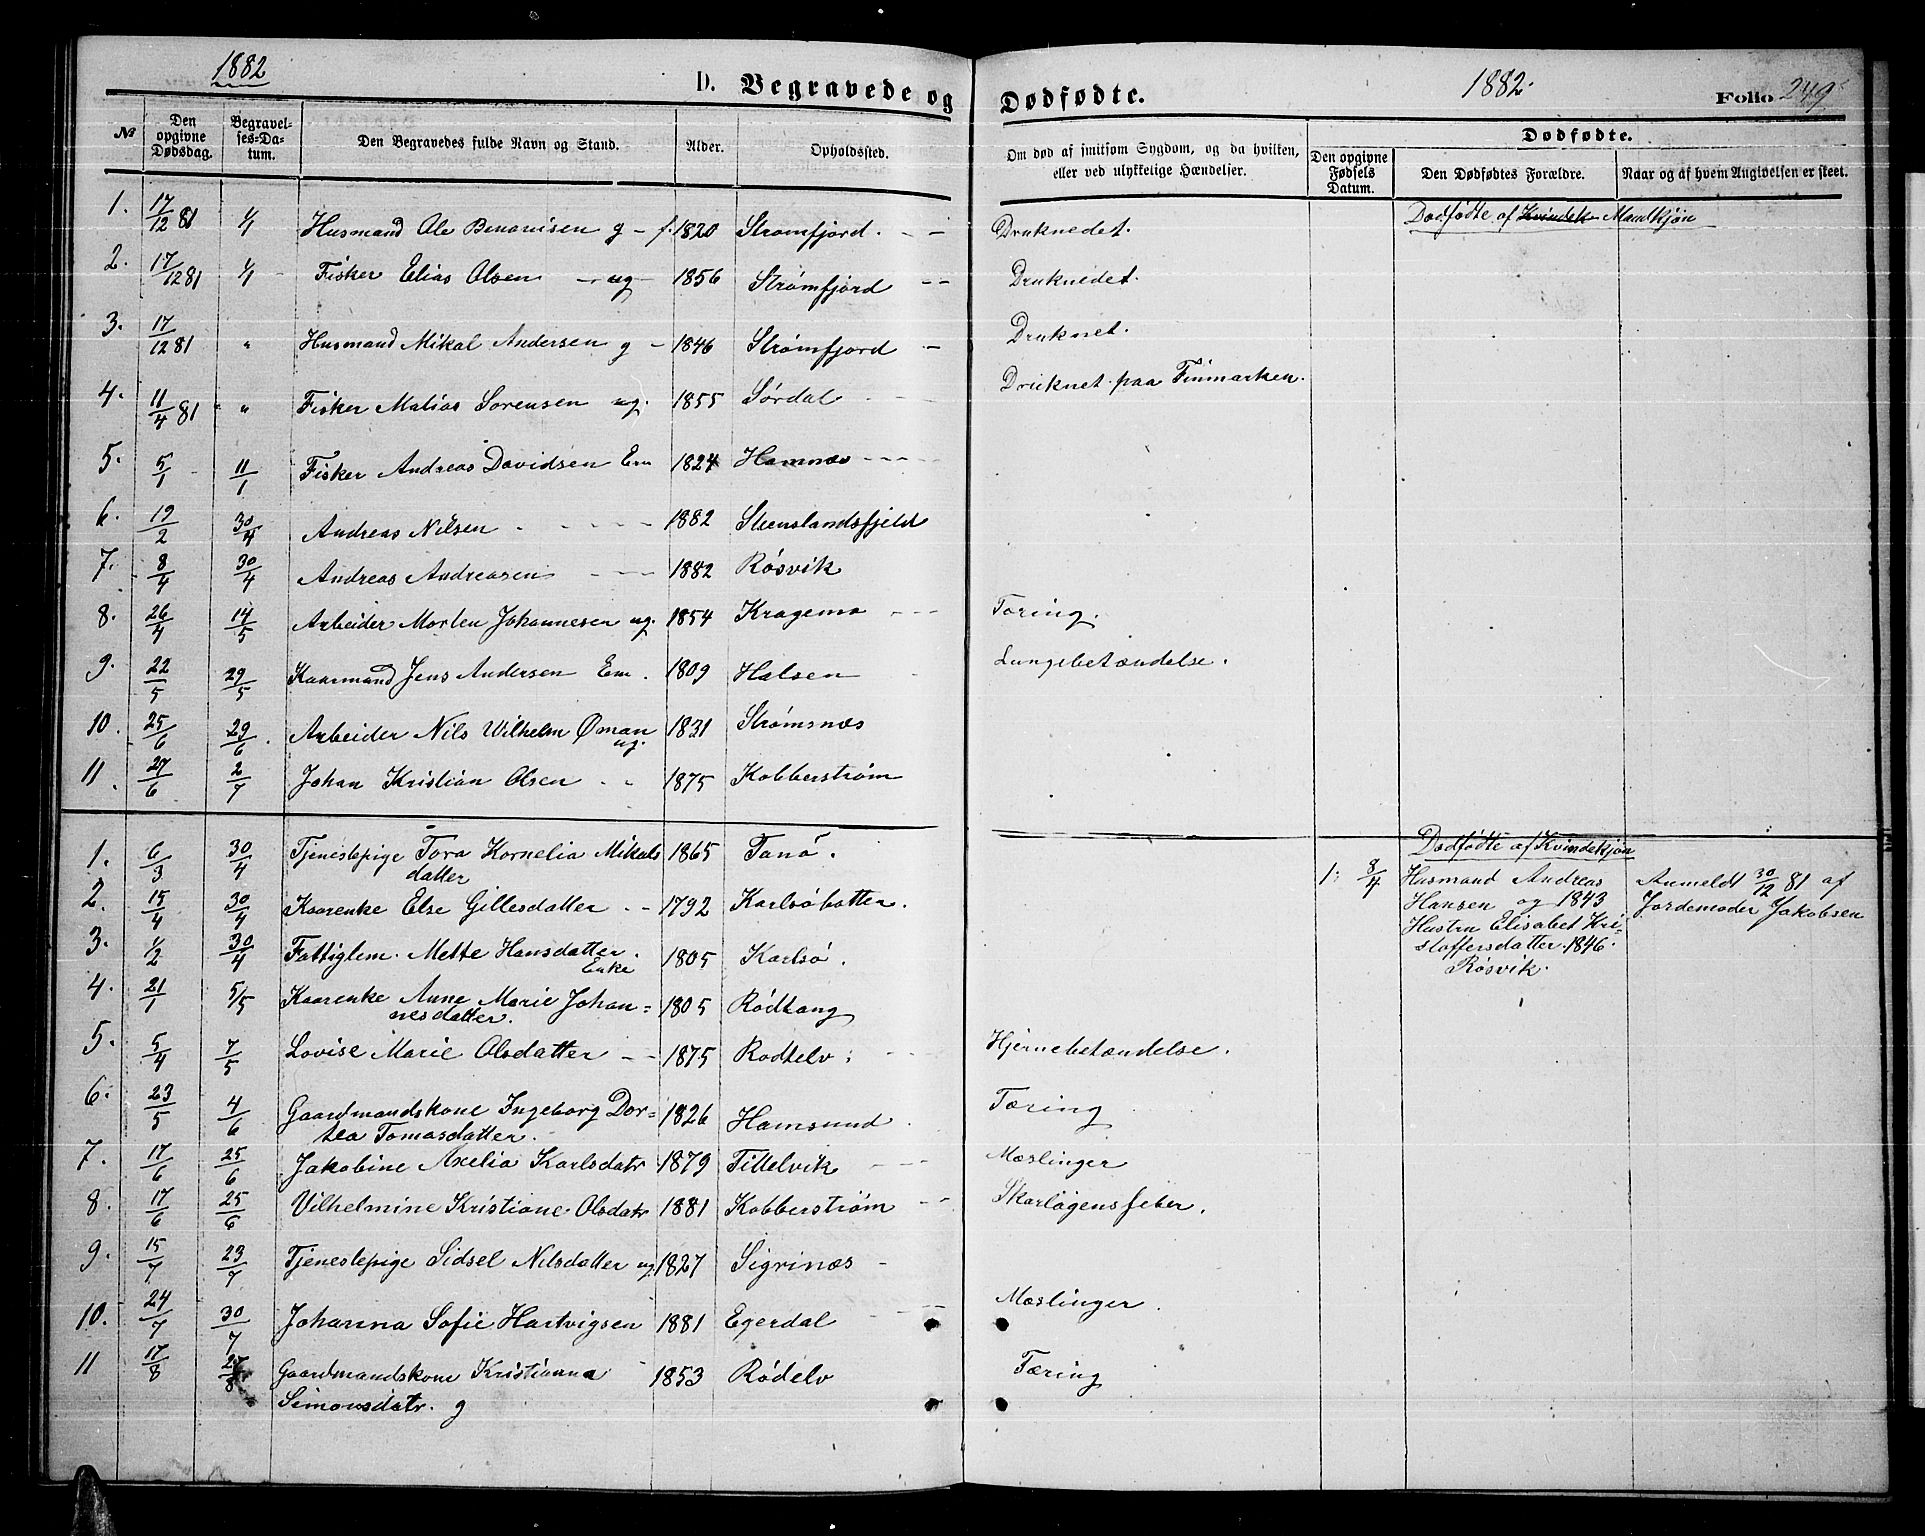 1882
D. Begravede og
Dødfødte.
1882.
Folio 249
№
Den opgivne Dødsdag.
Begravelses-Datum.
Den Begravedes fulde Navn og Stand.
Alder.
Opholdssted.
Om død af smitsom Sygdom, og da hvilken, eller ved ulykkelige Hændelser.
Dødfødte.
Den opgivne Fødsels Datum.
Den Dødfødtes Forældre.
Naar og af hvem Angivelsen er skeet.
Dødfødte af Kvindek Mandkjøn
1. 17/12 81 1/1 Husmand Ole Benonisen g - f. 1820 Strømfjord. - - Druknedet.
2. 17/12 81 1/1 - Fisker Elias Olsen - ug - 1856 Strømfjord - - Druknedet.
3. 17/12 81 " Husmand Mikal Andersen g - 1846 Strømfjord - Druknet.
4. 11/4 81 " " Fisker Matias Sørensen ug. 1855 Sørdal - - Druknet paa Finmarken.
5. 5/1 - 11/1 Fisker Andreas Davidsen Em 1824 Hamnæs - - - -
6. 19/2 30/4 Andreas Nilsen - - - - 1882 Stenslandsfjeld
7. 8/4 30/4 Andreas Andreasen - - - 1882 Røsvik
8. 26/4 14/5 Arbeider Morten Johannesen ug. 1854 Kragemo - - - Tæring.
9. 22/5 29/5 Kaarmand Jens Andersen Em. 1809 Halsen Lungebetændelse.
10. 25/6 29/6. Arbeider Nils Wilhelm Øman ug. 1831 Strømsnæs
11. 27/6 2/7 Johan Kristian Olsen . " 1875 Kobberstrøm
Dødfødte af Kvindekjøn
1. 6/3 30/4 Tjenestepige Tora Kornelia Mikals
datter 1865 Tanö.
1. 8/4 Husmand Andreas
Hansen og 1843
Hustru Elisabet Kri-
stoffersdatter. 1846.
Røsvik.
Anmeldt 30/12 81 af
Jordemoder Jakobsen
2. 15/4 30/4 Kaarenke Else Gillesdatter - - 1792 Karlsöbatter.
3. 1/2 30/4 Fattiglem. Mette Hansdatter.
Enke 1805 Karlsö.
4. 21/1 5/5 Kaarenke Anne Marie Johan-
nesdatter. 1805 Rødtang
5. 5/4 7/5 Lovise Marie Olsdatter - - 1875 Rødtelv. - - Hjernebetændelse.
6. 23/5 4/6 Gaardmandskone Ingeborg Dor-
tea Tomasdatter. 1826 Hamsund. Tæring
7. 17/6 25/6 Jakobine Axelia Karlsdatr 1879 Tittelvik - - - Mæslinger
8. 17/6 25/6 Vilhelmine Kristiane Olsdatr 1881 Kobberstrøm - - Skarlagensfeber.
9. 15/7 23/7 Tjenestepige Sidsel Nilsdatter ug 1827 Sigrinæs -
10. 24/7 30/7 Johanna Sofie Hartvigsen 1881 Egerdal - - - Mæslinger.
11 17/8 27/8 Gaardmandskone Kristianna
Simonsdatr. g 1853 Rødelv Tæring